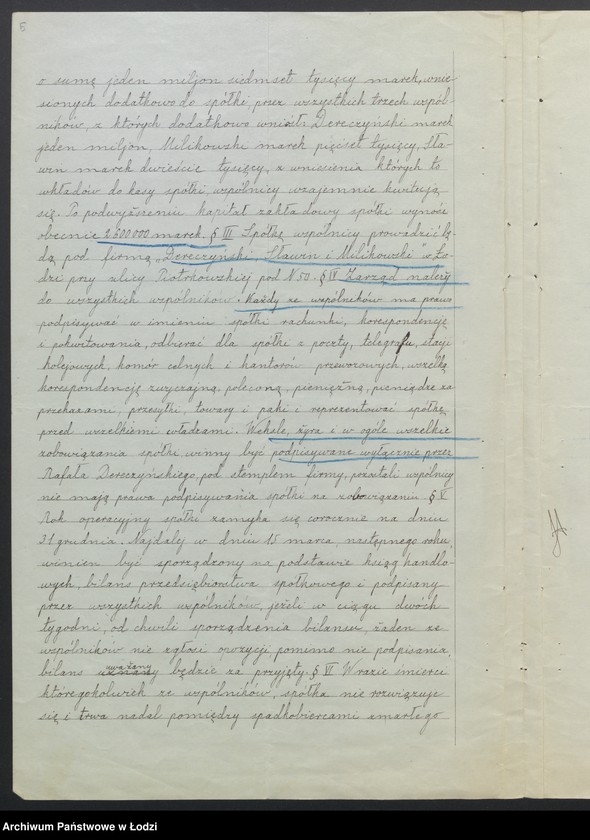 5
o sumę jeden miljon siedmset tysięcy marek, wnie-
sionych dodatkowo do spółki, przez wszystkich trzech wspól-
ników, z których dodatkowo wniósł: Dereczyński marek
jeden miljon, Milikowski marek pięćset tysięcy, Sła-
win marek dwieście tysięcy, z wniesienia których to
wkładów do kasy spółki, wspólnicy wzajemnie kwitują
się. Po podwyższeniu kapitał zakładowy spółki wynosi
obecnie 2600000 marek. § III Spółkę wspólnicy prowadzić bę-
dą pod firmą „Dereczyński, Sławin i Milikowski" w Ło-
dzi przy ulicy Piotrkowskiej pod N 50. § IV Zarząd należy
do wszystkich wspólników. Każdy ze wspólników ma prawo
podpisywać w imieniu spółki rachunki, korespondencję
i pokwitowania, odbierać dla spółki z poczty, telegrafu, stacji
kolejowych, komór celnych i kantorów przewozowych, wszelką
korespondencję zwyczajną, poleconą, pieniężną, pieniądze za
przekazami, przesyłki, towary i paki i reprezentować spółkę
przed wszelkiemi władzami. Weksle, żyra i w ogóle wszelkie
zobowiązania spółki, winny być podpisywane wyłącznie przez
Rafała Dereczyńskiego, pod stemplem firmy, pozostali wspólnicy
nie mają prawa podpisywania spółki za zobowiązaniu § V
Rok operacyjny spółki zamyka się corocznie na dniu
31 grudnia. Najdalej w dniu 15 marca, następnego roku,
winien być sporządzony na podstawie ksiąg handlo-
wych, bilans przedsiębiorstwa spółkowego i podpisany
przez wszystkich wspólników, jeżeli w ciągu dwóch
tygodni, od chwili sporządzenia bilansu, żaden ze
wspólników nie zgłosi opozycji pomimo nie podpisania,
bilans uważany będzie za przyjęty. § VI W razie śmierci
któregokolwiek ze wspólników, spółka nie rozwiązuje
się i trwa nadal pomiędzy spadkobiercami zmarłego
Archiwum Państwowe w Łodzi